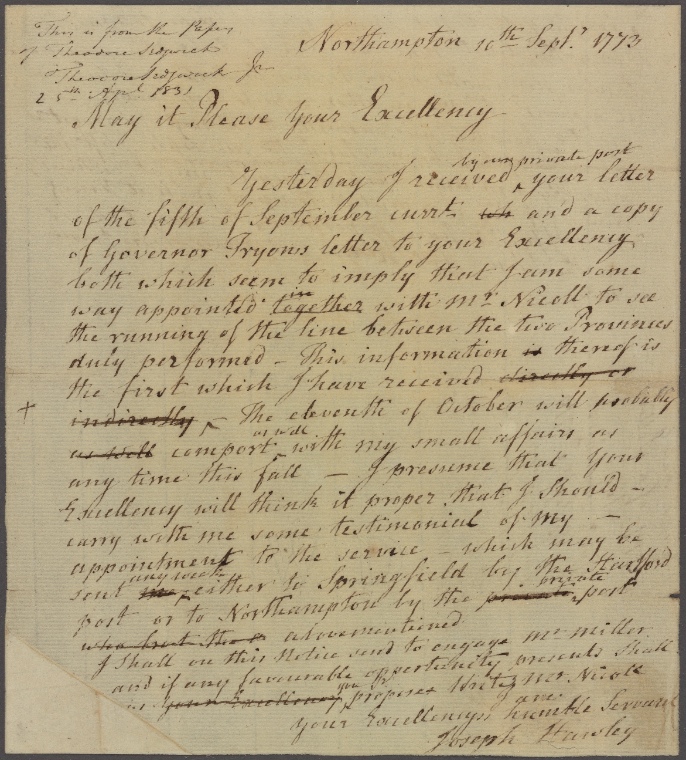 This is from the Papers
of Theodore Sedgwick
Theodore Sedgwick Jr
25th Apl 1831
Northampton 10th Sept. 1773
May it Please Your Excellency
by our private post
Yesterday I received ‸ your letter
of the fifth of September currt wh and a copy
of Governor Tryons letter to your Excellency
both which seem to imply that I am some
in
way appointed together with Mr Nicoll to see
the running of the line between the two Provinces
duly performed – This information is thereof is
the first which I have received directly or
indirectly ‸ – The eleventh of October will probably
as well
as well comport ‸ with my small affairs as
any time this fall — I presume that Your
Excellency will think it proper that I Should –
carry with me some testimonial of my –
appointment to the service – which may be
any week
sent ‸ either to Springfield by the Hartford
private
post or to Northampton by the private ‸ post
who brot the abovementioned
I Shall on this Notice send to engage Mr Miller
and if any favourable opportunity presents Shall
your Excellency proposes Write Mr Nicoll
am
your Excellencys humble Servant
Joseph Hawley